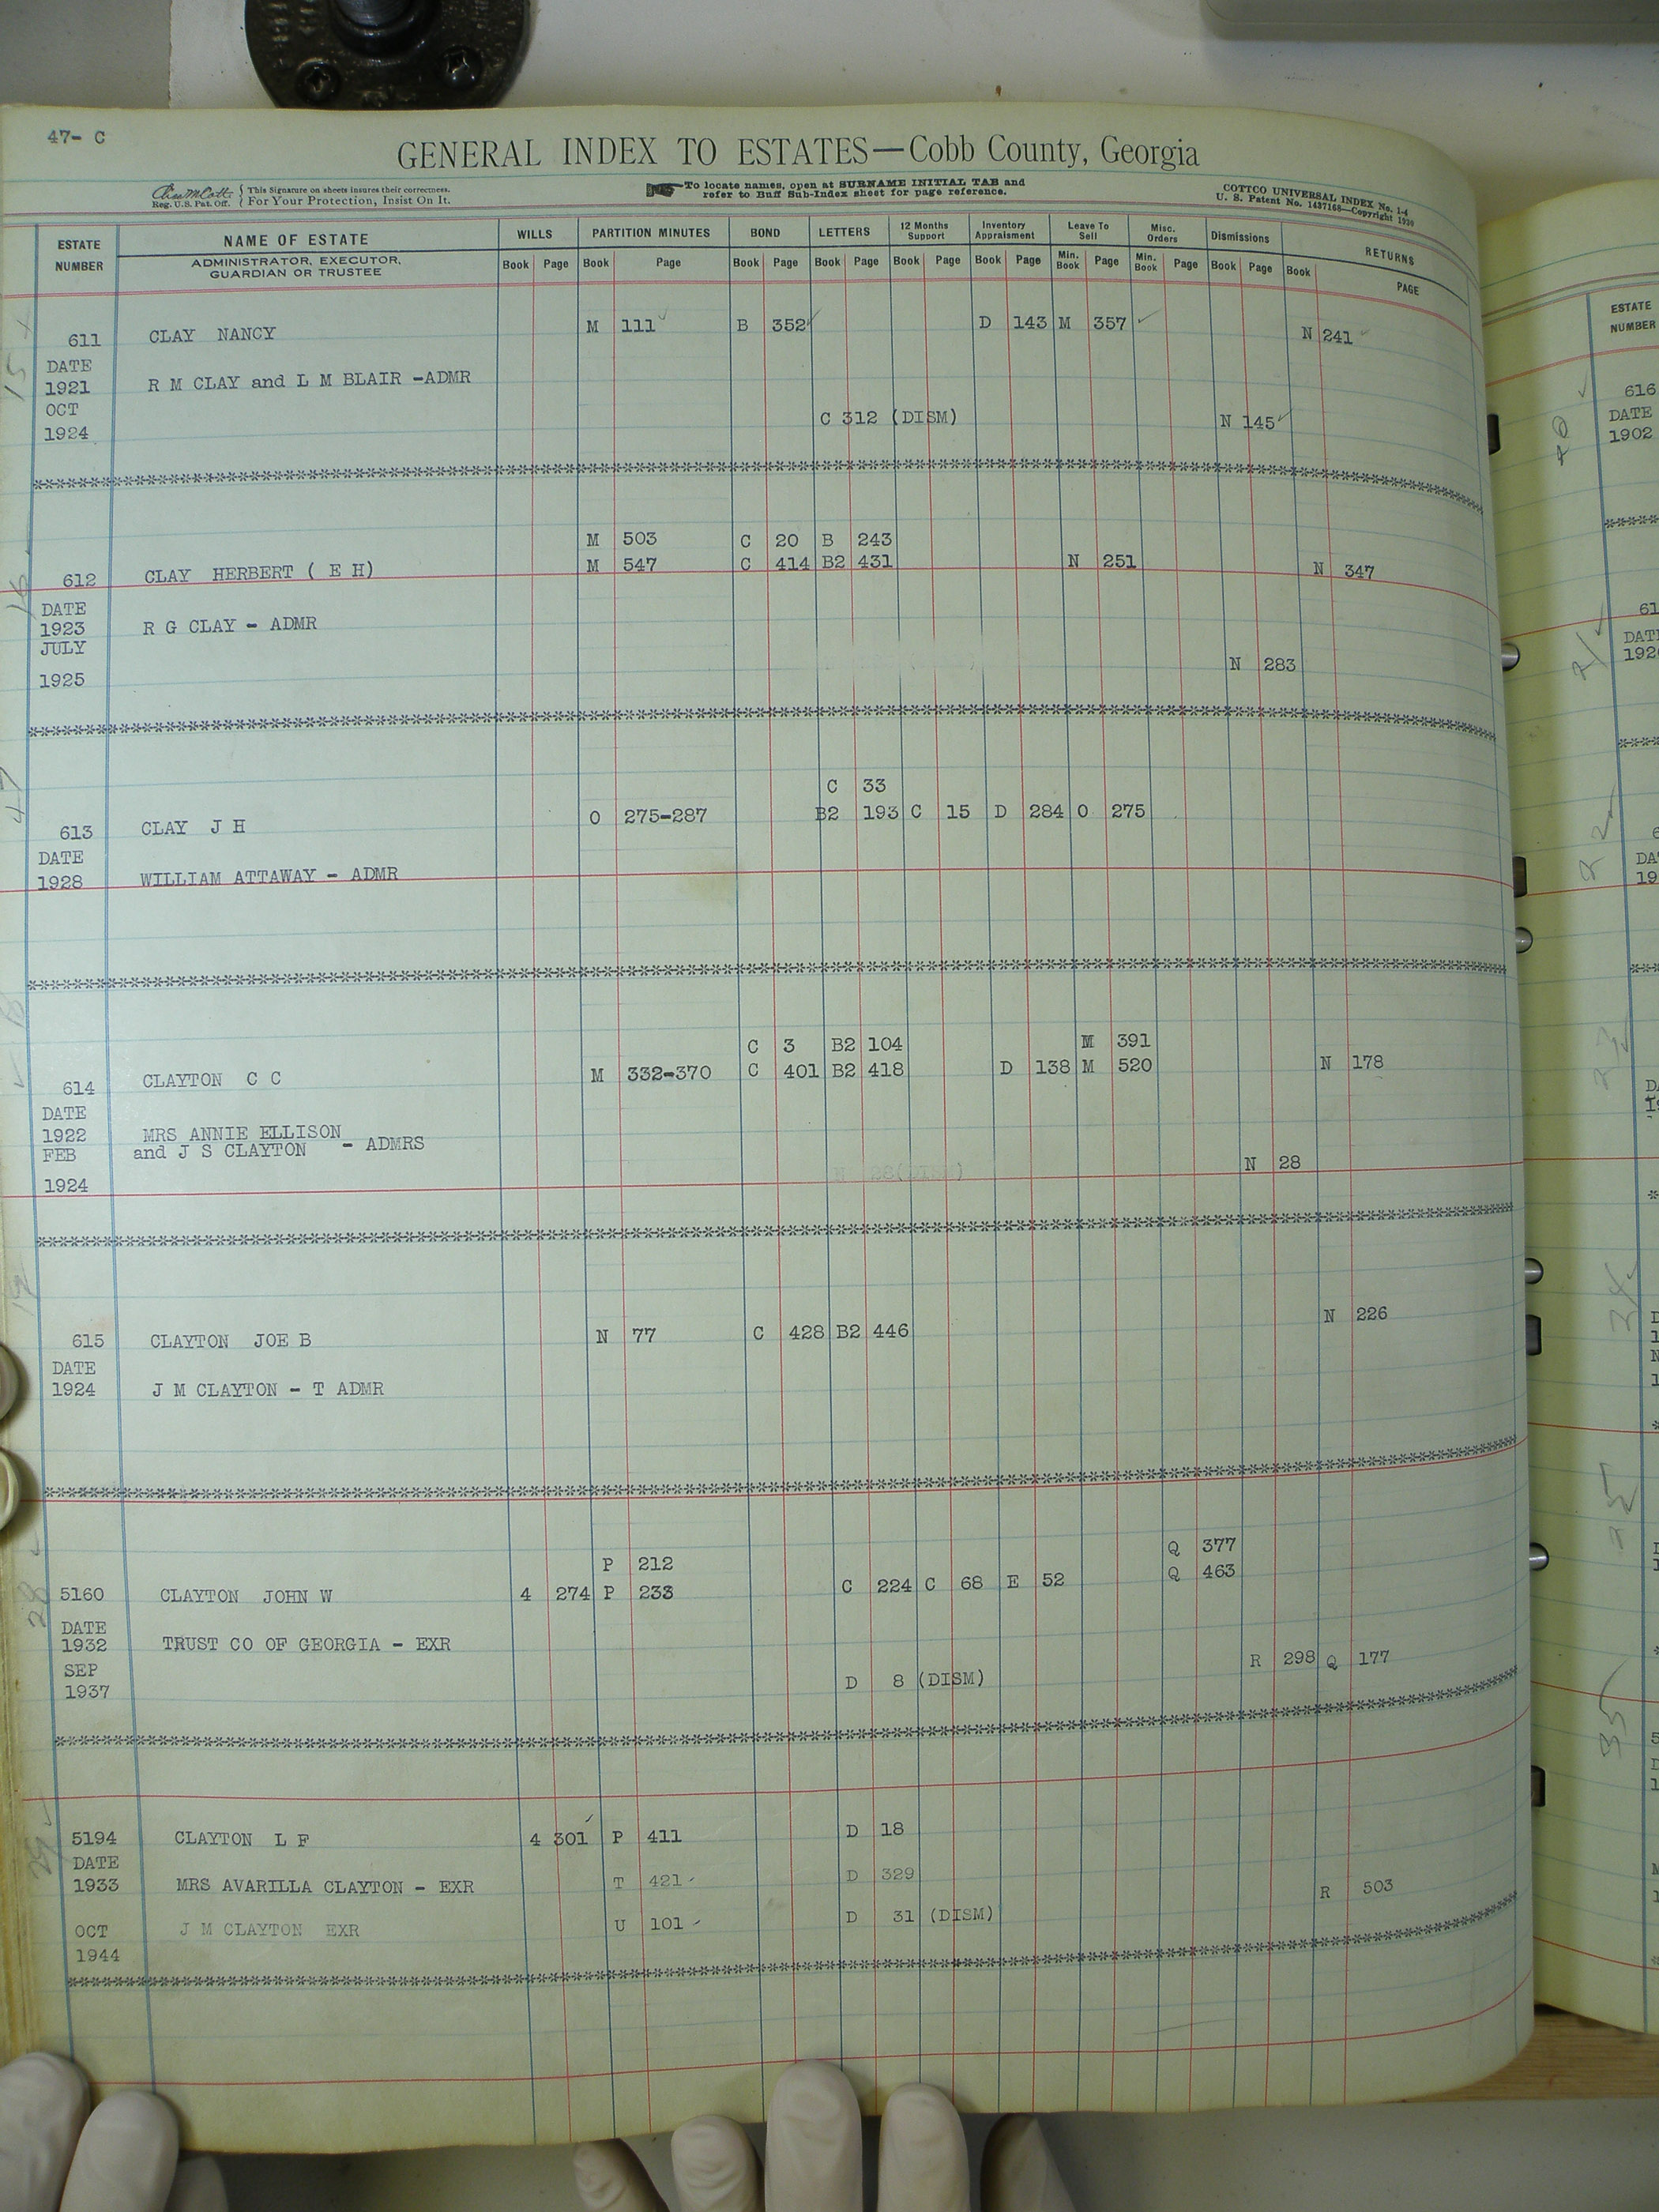 47- C
GENERAL INDEX TO ESTATES—Cobb County, Georgia
Reg. U.S. Pat. Off. { This Signature on sheets insures their correctness. For Your Protection, Insist On It.
To locate names, open at SURNAME INITIAL TAB and
refer to Buff Sub-Index sheet for page reference.
COTTCO UNIVERSAL INDEX No. 1-4
U. S. Patent No. 1437168—Copyright 1930
ESTATE NUMBER NAME OF ESTATE WILLS PARTITION MINUTES BOND LETTERS 12 Months Support Inventory Appraisment Leave To Sell Misc. Orders Dismissions RETURNS
ADMINISTRATOR, EXECUTOR, GUARDIAN OR TRUSTEE Book Page Book Page Book Page Book Page Book Page Book Page Min. Book Page Min. Book Page Book Page Book PAGE
611 CLAY NANCY M 111 B 352 D 143 M 357 N 241
DATE
1921 R M CLAY and L M BLAIR -ADMR
OCT C 312 (DISM) N 145
1924
M 503 C 20 B 243
612 CLAY HERBERT ( E H) M 547 C 414 B2 431 N 251 N 347
DATE
1923 R G CLAY - ADMR
JULY
N 283
1925
C 33
613 CLAY J H O 275-287 B2 193 C 15 D 284 O 275
DATE
1928 WILLIAM ATTAWAY - ADMR
C 3 B2 104 M 391
614 CLAYTON C C M 332-370 C 401 B2 418 D 138 M 520 N 178
DATE
1922 MRS ANNIE ELLISON
FEB and J S CLAYTON - ADMRS
N 28
1924
N 226
615 CLAYTON JOE B N 77 C 428 B2 446
DATE
1924 J M CLAYTON - T ADMR
P 212 Q 377
5160 CLAYTON JOHN W 4 274 P 233 C 224 C 68 E 52 Q 463
DATE
1932 TRUST CO OF GEORGIA - EXR
SEP R 298 Q 177
1937 D 8 (DISM)
5194 CLAYTON L F 4 301 P 411 D 18
DATE T 421 D 329
1933 MRS AVARILLA CLAYTON - EXR R 503
OCT J M CLAYTON EXR U 101 D 31 (DISM)
1944
ESTATE
NUMBER
616
DATE
1902